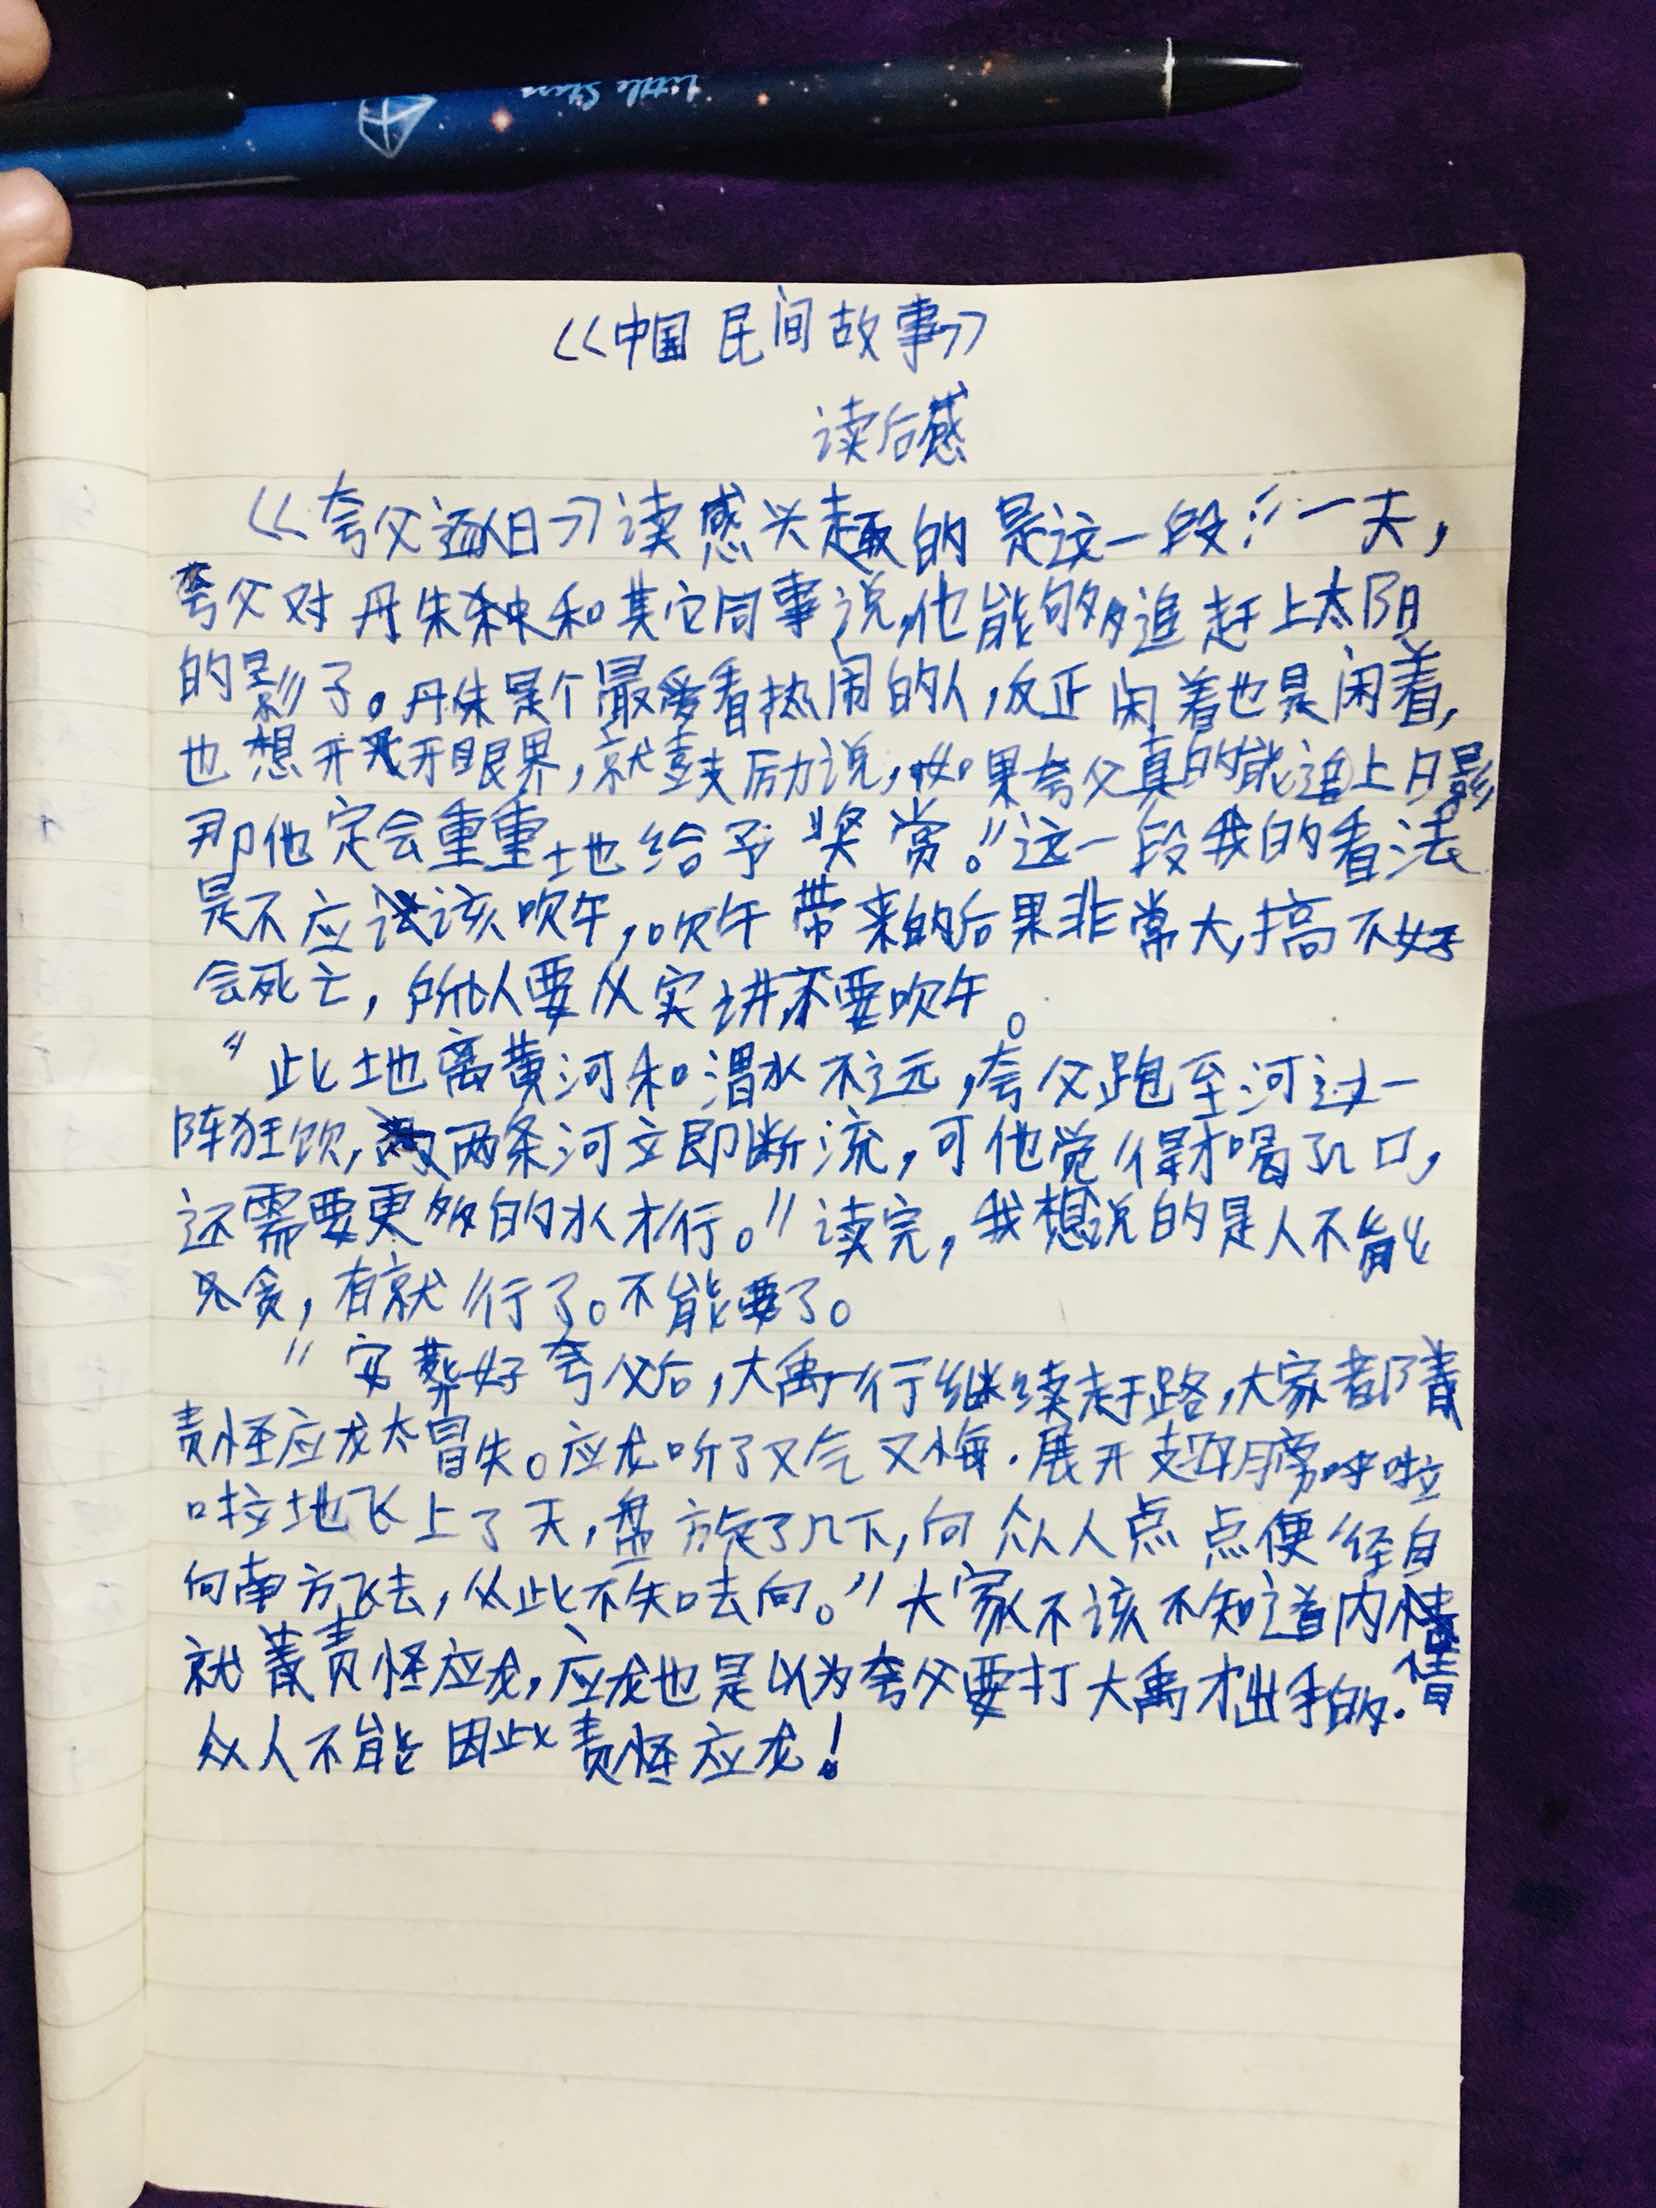 Little Stars
《中国民间故事》
读后感
《夸父逐日》读感兴趣的是这一段:“一天,
夸父对丹朱和其它同事说,他能够追赶上太阳
的影子。丹朱是个最爱看热闹的人,反正闲着也是闲着,
也想开开眼界,就鼓励说,如果夸父真的能追上日影
那他定会重重地给予奖赏。”这一段我的看法
是不应该吹牛,吹牛带来的后果非常大,搞不好
会死亡,所以要从实讲,不要吹牛。
“此地离黄河和渭水不远,夸父跑至河边一
阵狂饮,两条河立即断流,可他觉得才喝了几口,
还需要更多的水才行。”读完,我想说的是人不能
只贪,有就行了。不能要了。
“安葬好夸父后,大禹一行继续赶路,大家都
责怪应龙太冒失。应龙听了又气又悔.展开翅膀呼啦
啦地飞上了天,盘旋了几下,向众人点点便径自
向南方飞去,从此不知去向。”大家不该不知道内情
就责怪应龙,应龙也是以为夸父要打大禹才出手的.
众人不能因此责怪应龙!